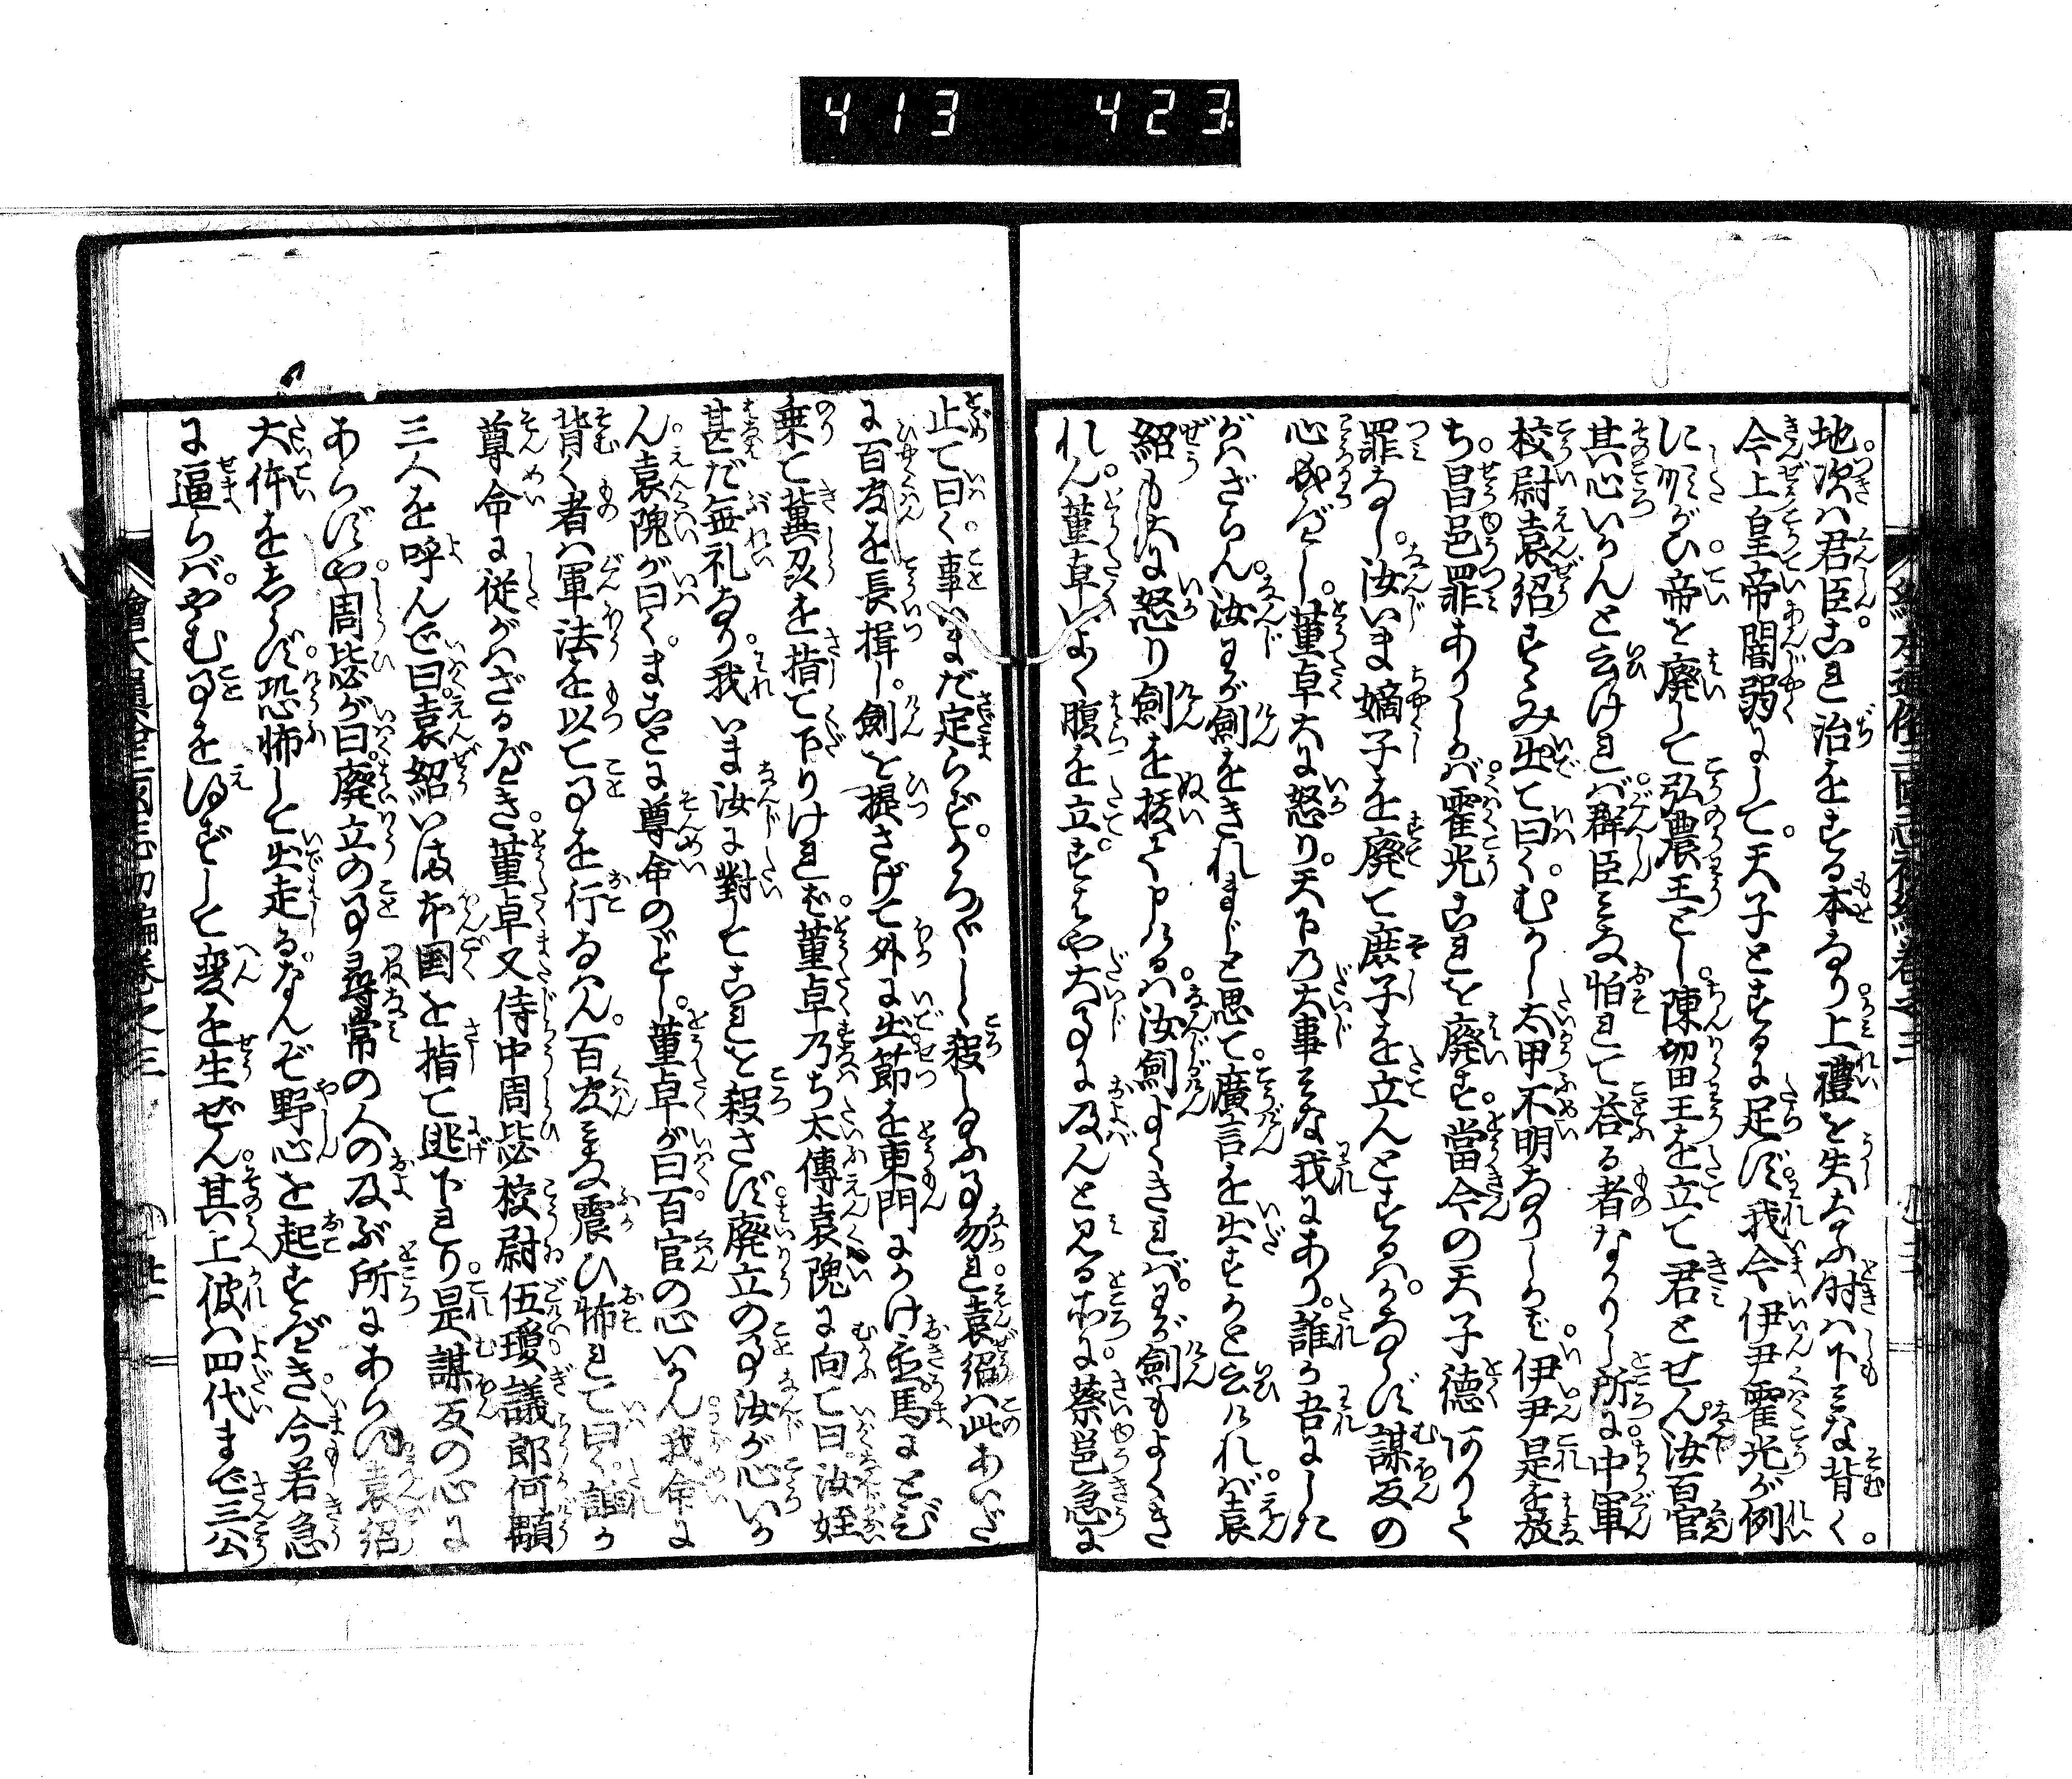 413 423
地次ハ君臣これ治をする本なり上禮を失なふ時ハ下みな背く。
今上皇帝闇弱にして。天子とするに足ず。我今伊尹霍光が例
に順がひ。帝を廃して弘農王とし。陳留王を立て君とせん。汝百官
其心いかんと云ければ。群臣みな怕れて答る者なかりし所に。中軍
校尉袁紹すゝみ出て曰く。むかし太甲不明なりしかば。伊尹是を放
ち。昌邑罪ありしかば。霍光これを廃す。當今の天子徳ありて
罪なし。汝いま嫡子を廃て庶子を立んとするハ。かならず謀反の
心成べし。董卓大に怒り。天下乃大事みな我にあり。誰か吾にした
がハざらん。汝わが劍をきれまじと思て。廣言を出すかと云ければ。袁
紹も大に怒り劍を抜て申けるハ。汝劍よくきれば。わが劍もよくき
れん。董卓いよ〱腹を立。すはや大事に及んと見る所に。蔡邕急に
止て曰く。事いまだ定らず。かろ〲しく殺し給ふ事勿れ。袁紹ハ此あいだ
に百官を長揖し。劍を提さげて外に出。節を東門にかけ置。馬にとび
乗て冀州を指て下りければ。董卓乃ち太傅袁隗に向て曰。汝姪
甚だ無礼なり。我いま汝に對してこれを殺さず。廃立の事汝が心いか
ん。袁隗が曰く。まことに尊命のごとし。董卓が曰。百官の心いかん。我命に
背く者ハ軍法を以て事を行なハん。百官みな震ひ怖れて曰く。誰か
尊命に従がハざるべき。董卓又侍中周毖校尉伍瓊。議郎何顒
三人を呼んで曰。袁紹いま本国を指て迯下れり。是謀反の心に
あらずや。周毖が曰。廃立の事尋常の人の及ぶ所にあらず。袁紹
大体をしらず。恐怖して出走る。なんぞ野心を起すべき。今若急
に逼らば。やむ事を得ずして変を生ぜん。其上彼ハ四代まで三公
繪本通俗三國志初編卷之三
繪本通俗三國志初編卷之三
廿